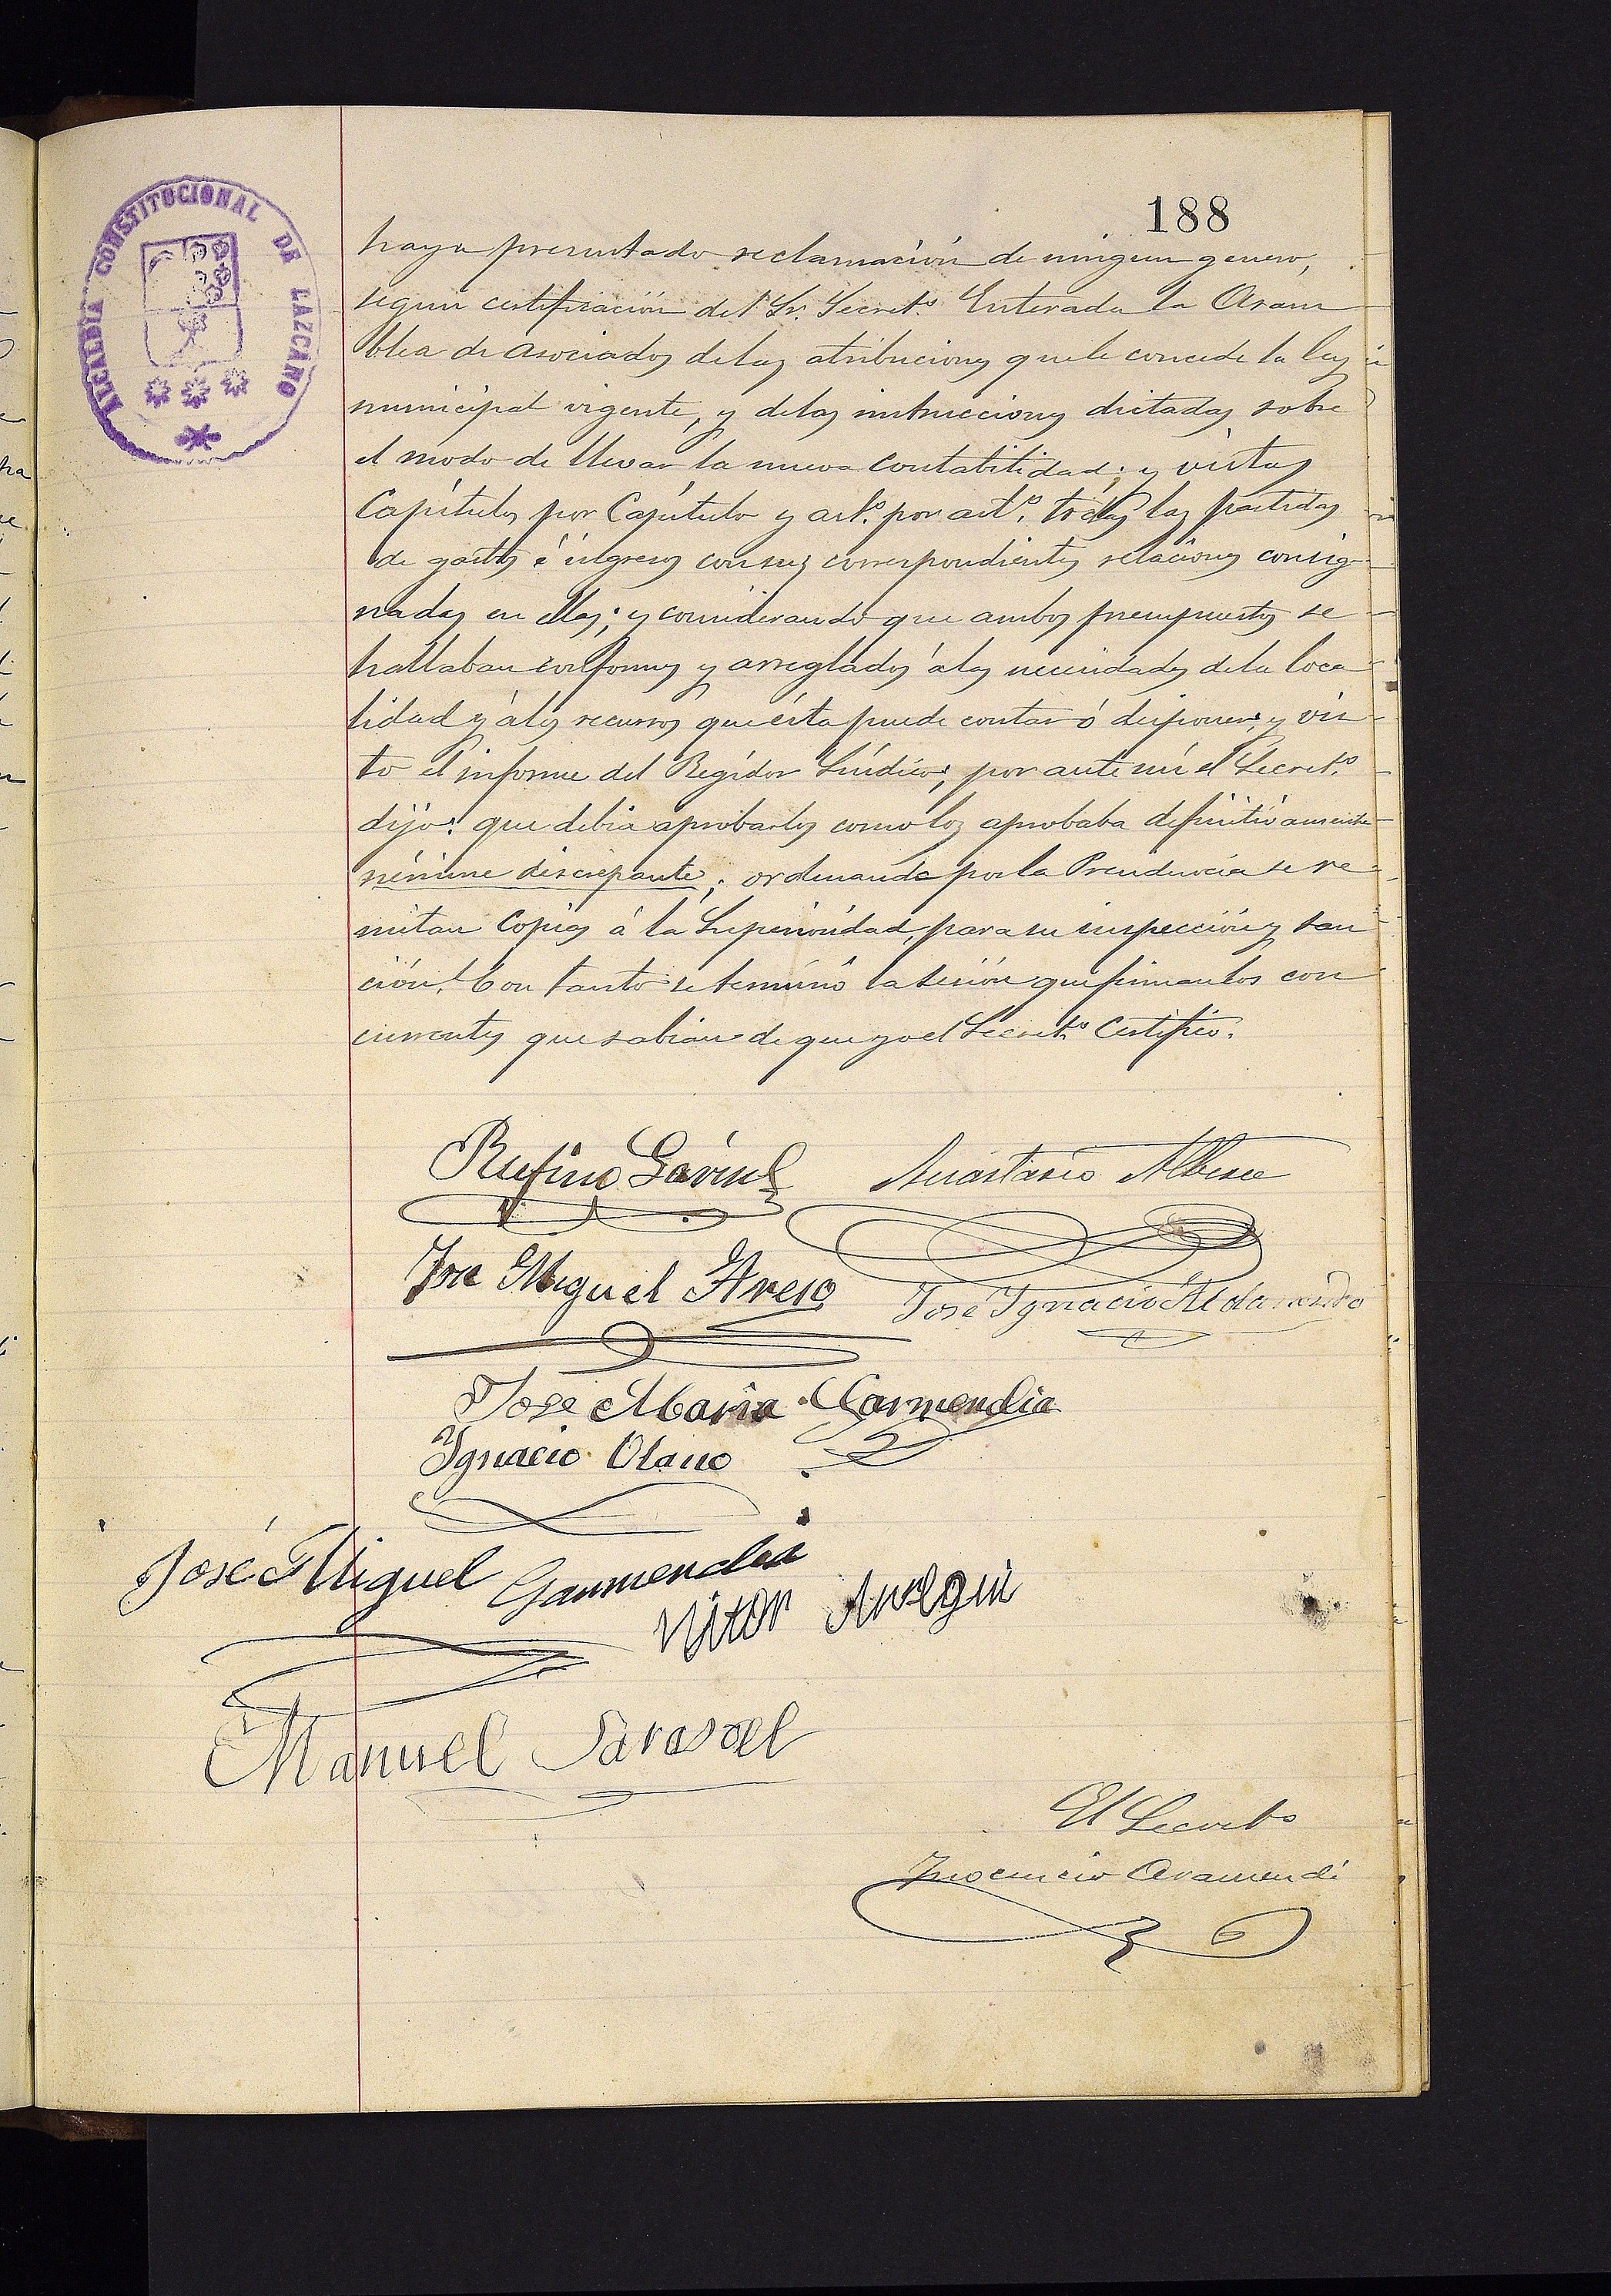 188
ALCALDIA CONSTITUCIONAL DE LAZCANO
haya presentado reclamación de ningun genero,
segun certificación del Sr. Secretº Enterada la Asam
blea de asociados de las atribuciones que le concede la ley
municipal vigente, y de las instrucciones dictadas sobre
el modo de llevar la nueva contabilidad; y vistas
Capítulos por Capítulo y artº. por artº. todas las partidas
de gastos é ingresos con sus correspondientes relaciones consig-
nadas en ellos; y considerando que ambos presupuestos se
hallaban conformes y arreglados á las necesidades de la loca
lidad y á los recursos que ésta puede contar ó disponer; y vis
to el informe del Regidor Síndico; por ante mí el Secretº
dijo: que debia aprobarlos como los aprobaba definitivamente
némine discrepante; ordenando por la Presidencia se re
mitan Copias á la Superioridad, para su inspección y san
ción. Con tanto se terminó la sesión que firman los con
currentes que sabian de que yo el Secretº Certifico.
Rufino Anastasio Albisu
José Miguel José Ignacio Aldanondo
Jose Maria Garmendia
Ignacio Olano
José Miguel Garmendia
Vitor
Manuel Sarasoel
El Secretº
Inocencio Aramendi